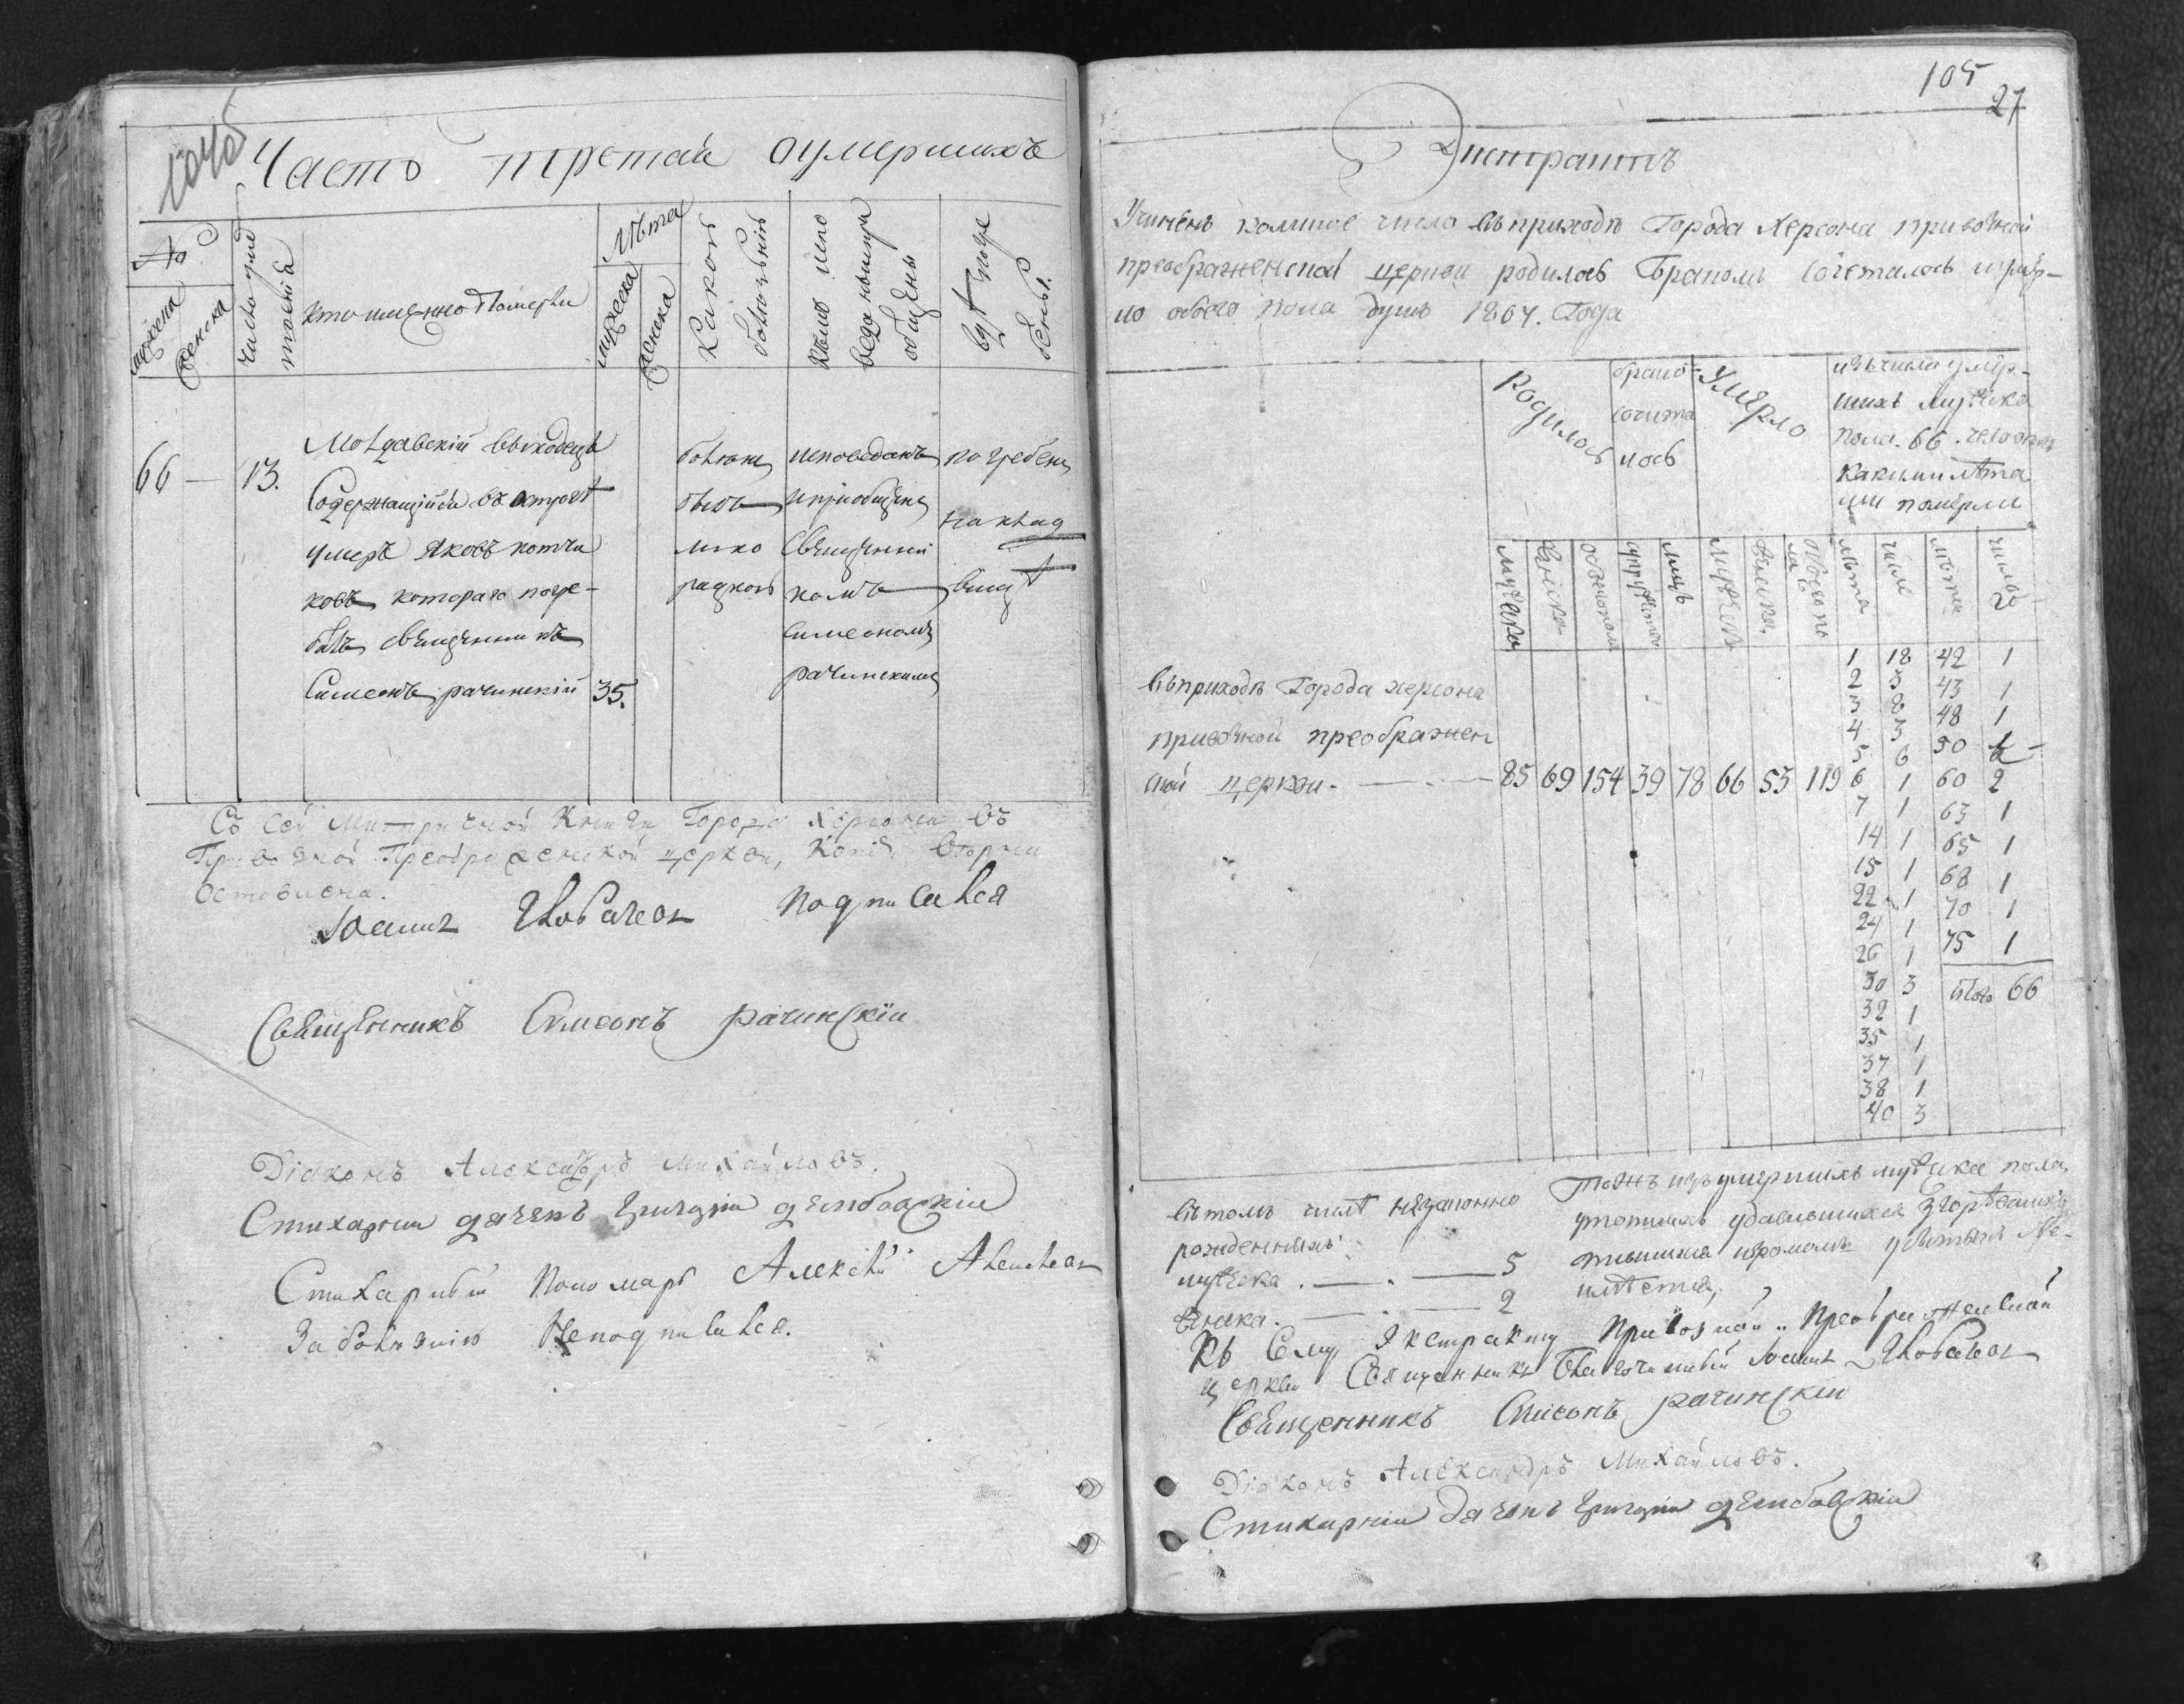 Часть третая оумершихъ
№
мужеска
женска
число
кто именно померли
Лѣта
мужеска
женска
Какою
болезнію
кѣмъ испо
веданы и при
общены
гдѣ погре
бены.
66 — 13.
Молдавскій выходецъ
Содержащійся въ острогѣ
умеръ Яковъ
котораго погре-
балъ священникъ
Симеонъ рачинскій 35.
боленъ
былъ
лихо
радкою
исповеданъ
и пріобщенъ
священни
комъ
симеономъ
рачинскимъ
погребенъ
на клад
бищѣ
Съ сей Метрической Книги Города Херсона въ
Привозной Преображенской церкви, Копія
Оставлена.
Іоаннъ подписался
Священникъ Симеонъ рачинскіи
Діаконъ Александръ Михайловъ.
Стихарни дячекъ Григоріи
Стихарный Пономарь Алексѣй
За болезнію Неподписался.
105
27
Экстрактъ
Учиненъ коликое число въ приходѣ Города Херсона привозной
преображенской церкви родилось бракомъ сочеталось и умер-
ло обоего пола душъ 1807. Года
Родилось
брако-
сочета
лось
Умерло
изъ числа умер-
шихъ мужеска
пола. 66. человекъ
какими лѣта
ми померли
мужеска
женска
обоего пола
супружествъ
лицъ
мужеска
женска
обоего по
ла
лѣта
число
лѣта
число
въ приходѣ Города херсона
привозной преображен
ской церкви. — 85 69 154 39 78 66 53 119
1 18 42 1
2 3 43 1
3 8 48 1
4 3 50 2
5 6 60 2
6 1 63 1
7 1 65 1
14 1 68 1
15 1 70 1
22 1 75 1
24 1
26 1
30 3 Итого 66
32 1
35 1
37 1
38 1
40 3
въ томъ числѣ незаконно
рожденныхъ
мужеска . — . — 5
женска . — . — 2
тожъ изъ умершихъ мужеска пола
утопшихъ удавившихся
не-
имѣется,
Къ Сему Экстракту Привозной Преображенской
церкви Священникъ Благочинный Іоаннъ
Священникъ Симеонъ рачинскіи
Діаконъ Александръ Михайловъ.
Стихарніи дячекъ Григоріи